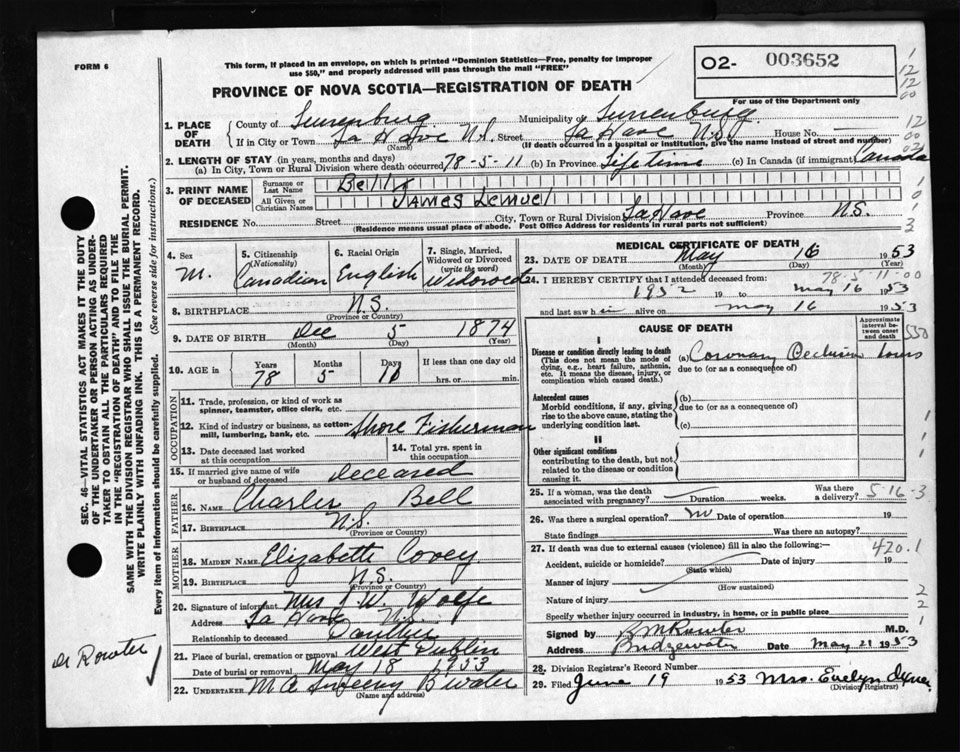 FORM 6
This form, if placed in an envelope, on which is printed "Dominion Statistics—Free, penalty for improper
use $50," and properly addressed will pass through the mail "FREE"
O2- 003652
PROVINCE OF NOVA SCOTIA—REGISTRATION OF DEATH
For use of the Department only
1. PLACE OF DEATH
County of Lunenburg Municipality of Lunenburg
If in City or Town La Have N.S. Street La Have N.S. House No.
(Name) (If death occurred in a hospital or institution, give the name instead of street and number)
2. LENGTH OF STAY (in years, months and days)
(a) In City, Town or Rural Division where death occurred 78-5-11 (b) In Province Lifetime (c) In Canada (if immigrant) Canada
3. PRINT NAME OF DECEASED
Surname or Last Name Bell
All Given or Christian Names JAMES Lemuel
RESIDENCE No. Street City, Town or Rural Division LaHave Province N.S.
(Residence means usual place of abode. Post Office Address for residents in rural parts not sufficient)
4. Sex M.
5. Citizenship (Nationality) Canadian
6. Racial Origin English
7. Single, Married, Widowed or Divorced (write the word) Widowed
8. BIRTHPLACE N.S.
(Province or Country)
9. DATE OF BIRTH Dec 5 1874
(Month) (Day) (Year)
10. AGE in Years Months Days If less than one day old
78 5 11 hrs. or min.
OCCUPATION
11. Trade, profession, or kind of work as
spinner, teamster, office clerk, etc.
12. Kind of industry or business, as cotton-
mill, lumbering, bank, etc. Shore Fisherman
13. Date deceased last worked
at this occupation
14. Total yrs. spent in
this occupation
15. If married give name of wife
or husband of deceased deceased
FATHER
16. Name Charles Bell
17. Birthplace N.S.
(Province or Country)
MOTHER
18. Maiden Name Elizabeth Covey
19. Birthplace N.S.
(Province or Country)
20. Signature of informant Mrs J W. Wolfe
Address La Have N.S.
Relationship to deceased Daughter
21. Place of burial, cremation or removal West Dublin
Date of burial or removal May 18 1953
22. Undertaker M A Sweeny B'water
(Name and address)
MEDICAL CERTIFICATE OF DEATH
23. DATE OF DEATH May 16 1953
(Month) (Day) (Year)
78-5-11-00
24. I HEREBY CERTIFY that I attended deceased from:
1952 19 to May 16 1953
and last saw h im alive on May 16 1953
CAUSE OF DEATH
Approximate interval between onset and death
I
Disease or condition directly leading to death
(This does not mean the mode of
dying, e.g., heart failure, asthenia,
etc. It means the disease, injury, or
complication which caused death.)
(a) Coronary Occlusion hours
due to (or as a consequence of)
Antecedent causes
Morbid conditions, if any, giving
rise to the above cause, stating the
underlying condition last.
(b)
due to (or as a consequence of)
(c)
II
Other significant conditions
contributing to the death, but not
related to the disease or condition
causing it.
25. If a woman, was the death
associated with pregnancy? Duration weeks. Was there a delivery?
5-16-3
26. Was there a surgical operation? no Date of operation 19
State findings Was there an autopsy?
27. If death was due to external causes (violence) fill in also the following:—
420.1
Accident, suicide or homicide? Date of injury 19
(State which)
Manner of injury
(How sustained)
Nature of injury
Specify whether injury occurred in industry, in home, or in public place
Signed by M.D.
Address Bridgewater Date May 21 1953
28. Division Registrar's Record Number
29. Filed June 19 1953 Mrs. Evelyn
(Division Registrar)
SEC. 46—VITAL STATISTICS ACT MAKES IT THE DUTY
OF THE UNDERTAKER OR PERSON ACTING AS UNDER-
TAKER TO OBTAIN ALL THE PARTICULARS REQUIRED
IN THE "REGISTRATION OF DEATH" AND TO FILE THE
SAME WITH THE DIVISION REGISTRAR WHO SHALL ISSUE THE BURIAL PERMIT.
WRITE PLAINLY WITH UNFADING INK. THIS IS A PERMANENT RECORD.
Every item of information should be carefully supplied. (See reverse side for instructions.)